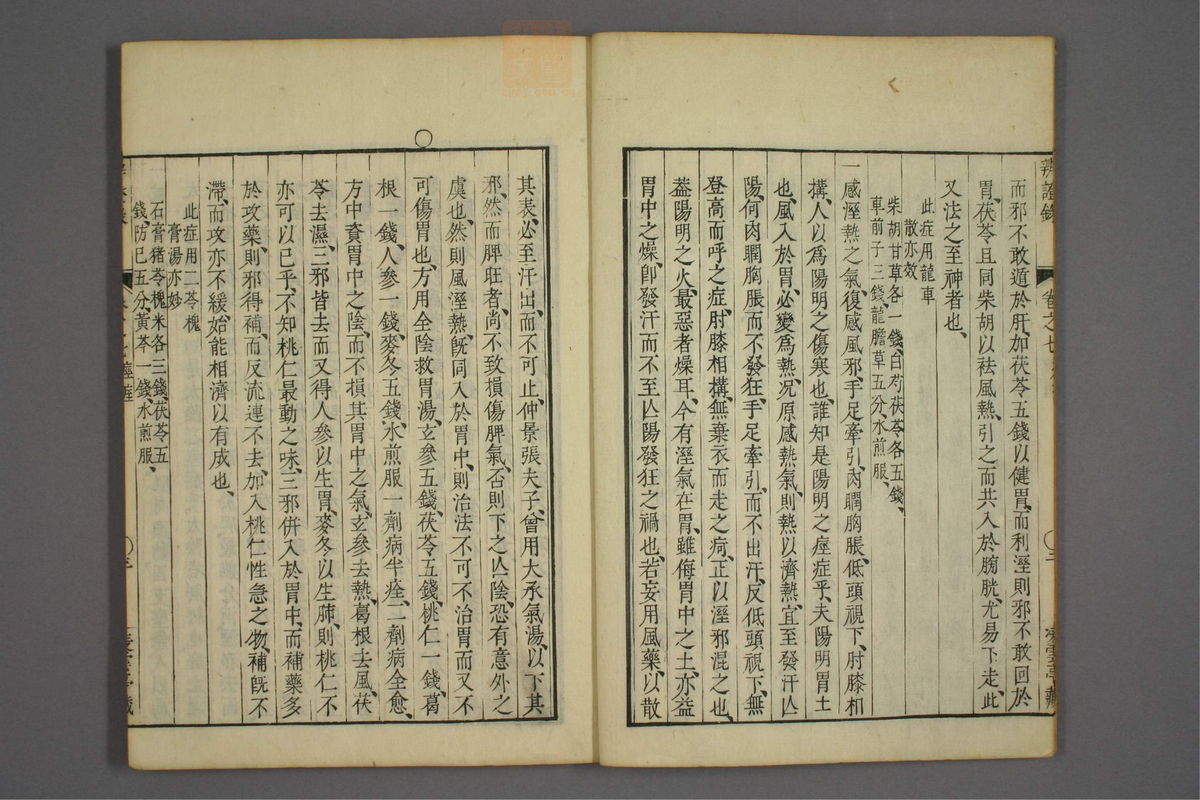 辨證錄
卷之七
而邪不敢遁於肝加茯苓五錢以健胃而利溼則邪不敢回於
胃、茯苓且同柴胡以袪風熱、引之而共入於膀胱尤易下走、此
又法之至神者也、
此症用龍車
散亦效
柴胡甘草各一錢、白芍茯苓各五錢、
車前子三錢、龍膽草五分、水煎服、
一感溼熱之氣、復感風邪、手足牽引、肉瞤胸脹、低頭視下、肘膝相
搆、人以爲陽明之傷寒也、誰知是陽明之痙症乎、夫陽明胃土
也、風入於胃、必變爲熱、况原感熱氣、則熱以濟熱、宜至發汗亾
陽、何肉瞤胸脹而不發狂、手足牽引、而不出汗、反低頭視下、無
登高而呼之症、肘膝相搆、無棄衣而走之疴、正以溼邪混之也、
葢陽明之火、最惡者燥耳、今有溼氣在胃、雖侮胃中之土、亦益
胃中之燥、卽發汗而不至亾陽發狂之禍也、若妄用風藥、以散
其表、必至汗出、而不可止、仲景張夫子、曾用大承氣湯、以下其
邪、然而脾旺者、尚不致損傷脾氣、否則下之亾陰、恐有意外之
虞也、然則風溼熱、旣同入於胃中、則治法不可不治胃而又不
可傷胃也、方用全陰救胃湯、玄參五錢茯苓五錢、桃仁一錢、葛
根一錢、人參一錢、麥冬五錢、水煎服一劑病半痊、二劑病全愈、
方中資胃中之陰、而不損其胃中之氣、玄參去熱、葛根去風、茯
苓去濕、三邪皆去而又得人參以生胃、麥冬以生肺、則桃仁不
亦可以已乎、不知桃仁最動之味、三邪併入於胃中、而補藥多
於攻藥、則邪得補、而反流連不去、加入桃仁性急之物、補旣不
滯、而攻亦不緩、始能相濟以有成也、
此症用二苓槐
膏湯亦妙
石膏猪苓槐米各三錢、茯苓五
錢、防已五分、黃芩一錢、水煎服、